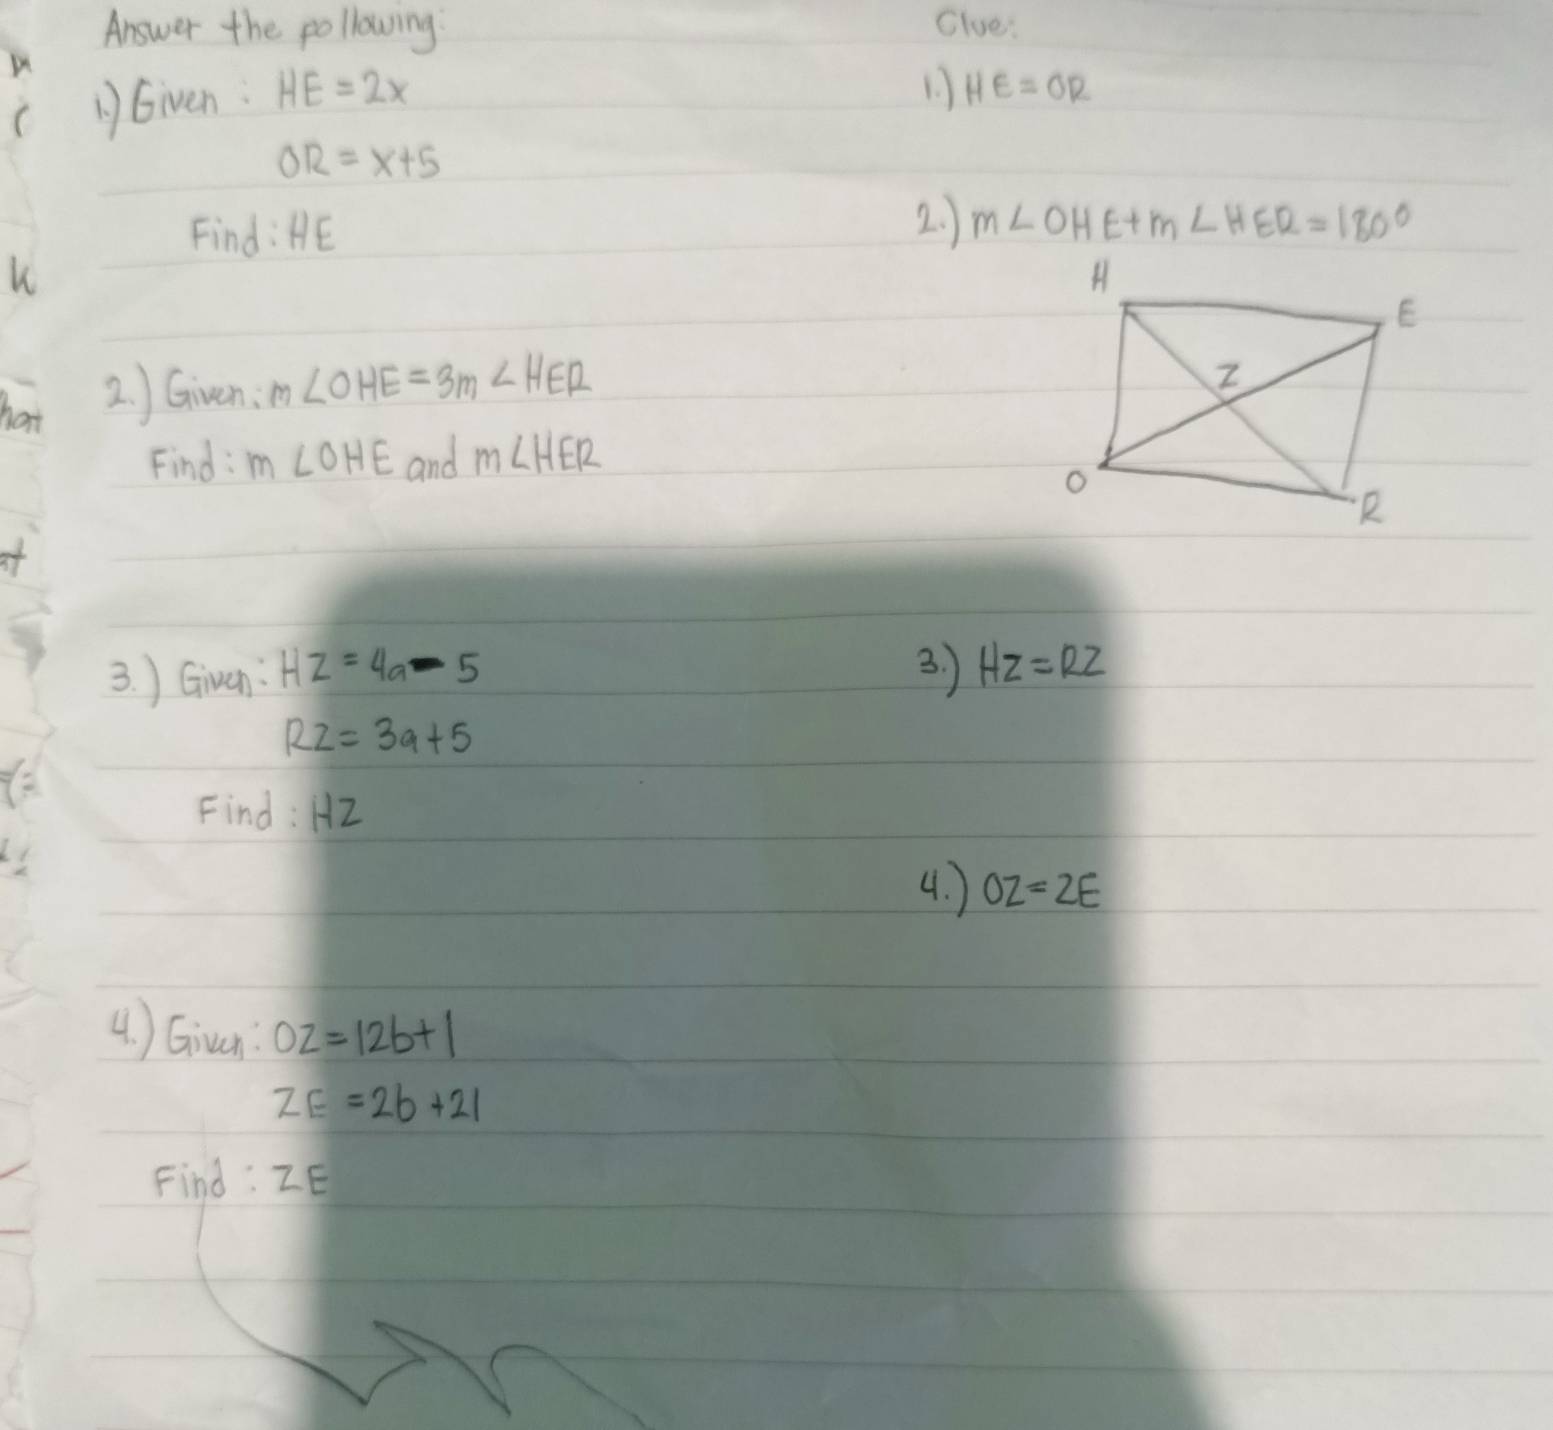 Answer the pollowing:
1.) Given: HE = 2x
OR = x+5
Find: HE
2.) Given: m∠OHE = 3m∠HER
Find: m∠OHE and m∠HER
3.) Given: HZ = 4a - 5
RZ = 3a+5
Find: HZ
4.) Given: OZ = 12b+1
ZE = 2b+21
Find: ZE
Clue:
1.) HE = OR
2.) m∠OHE + m∠HER = 180°
H
E
Z
O
R
3.) HZ = RZ
4.) OZ = ZE